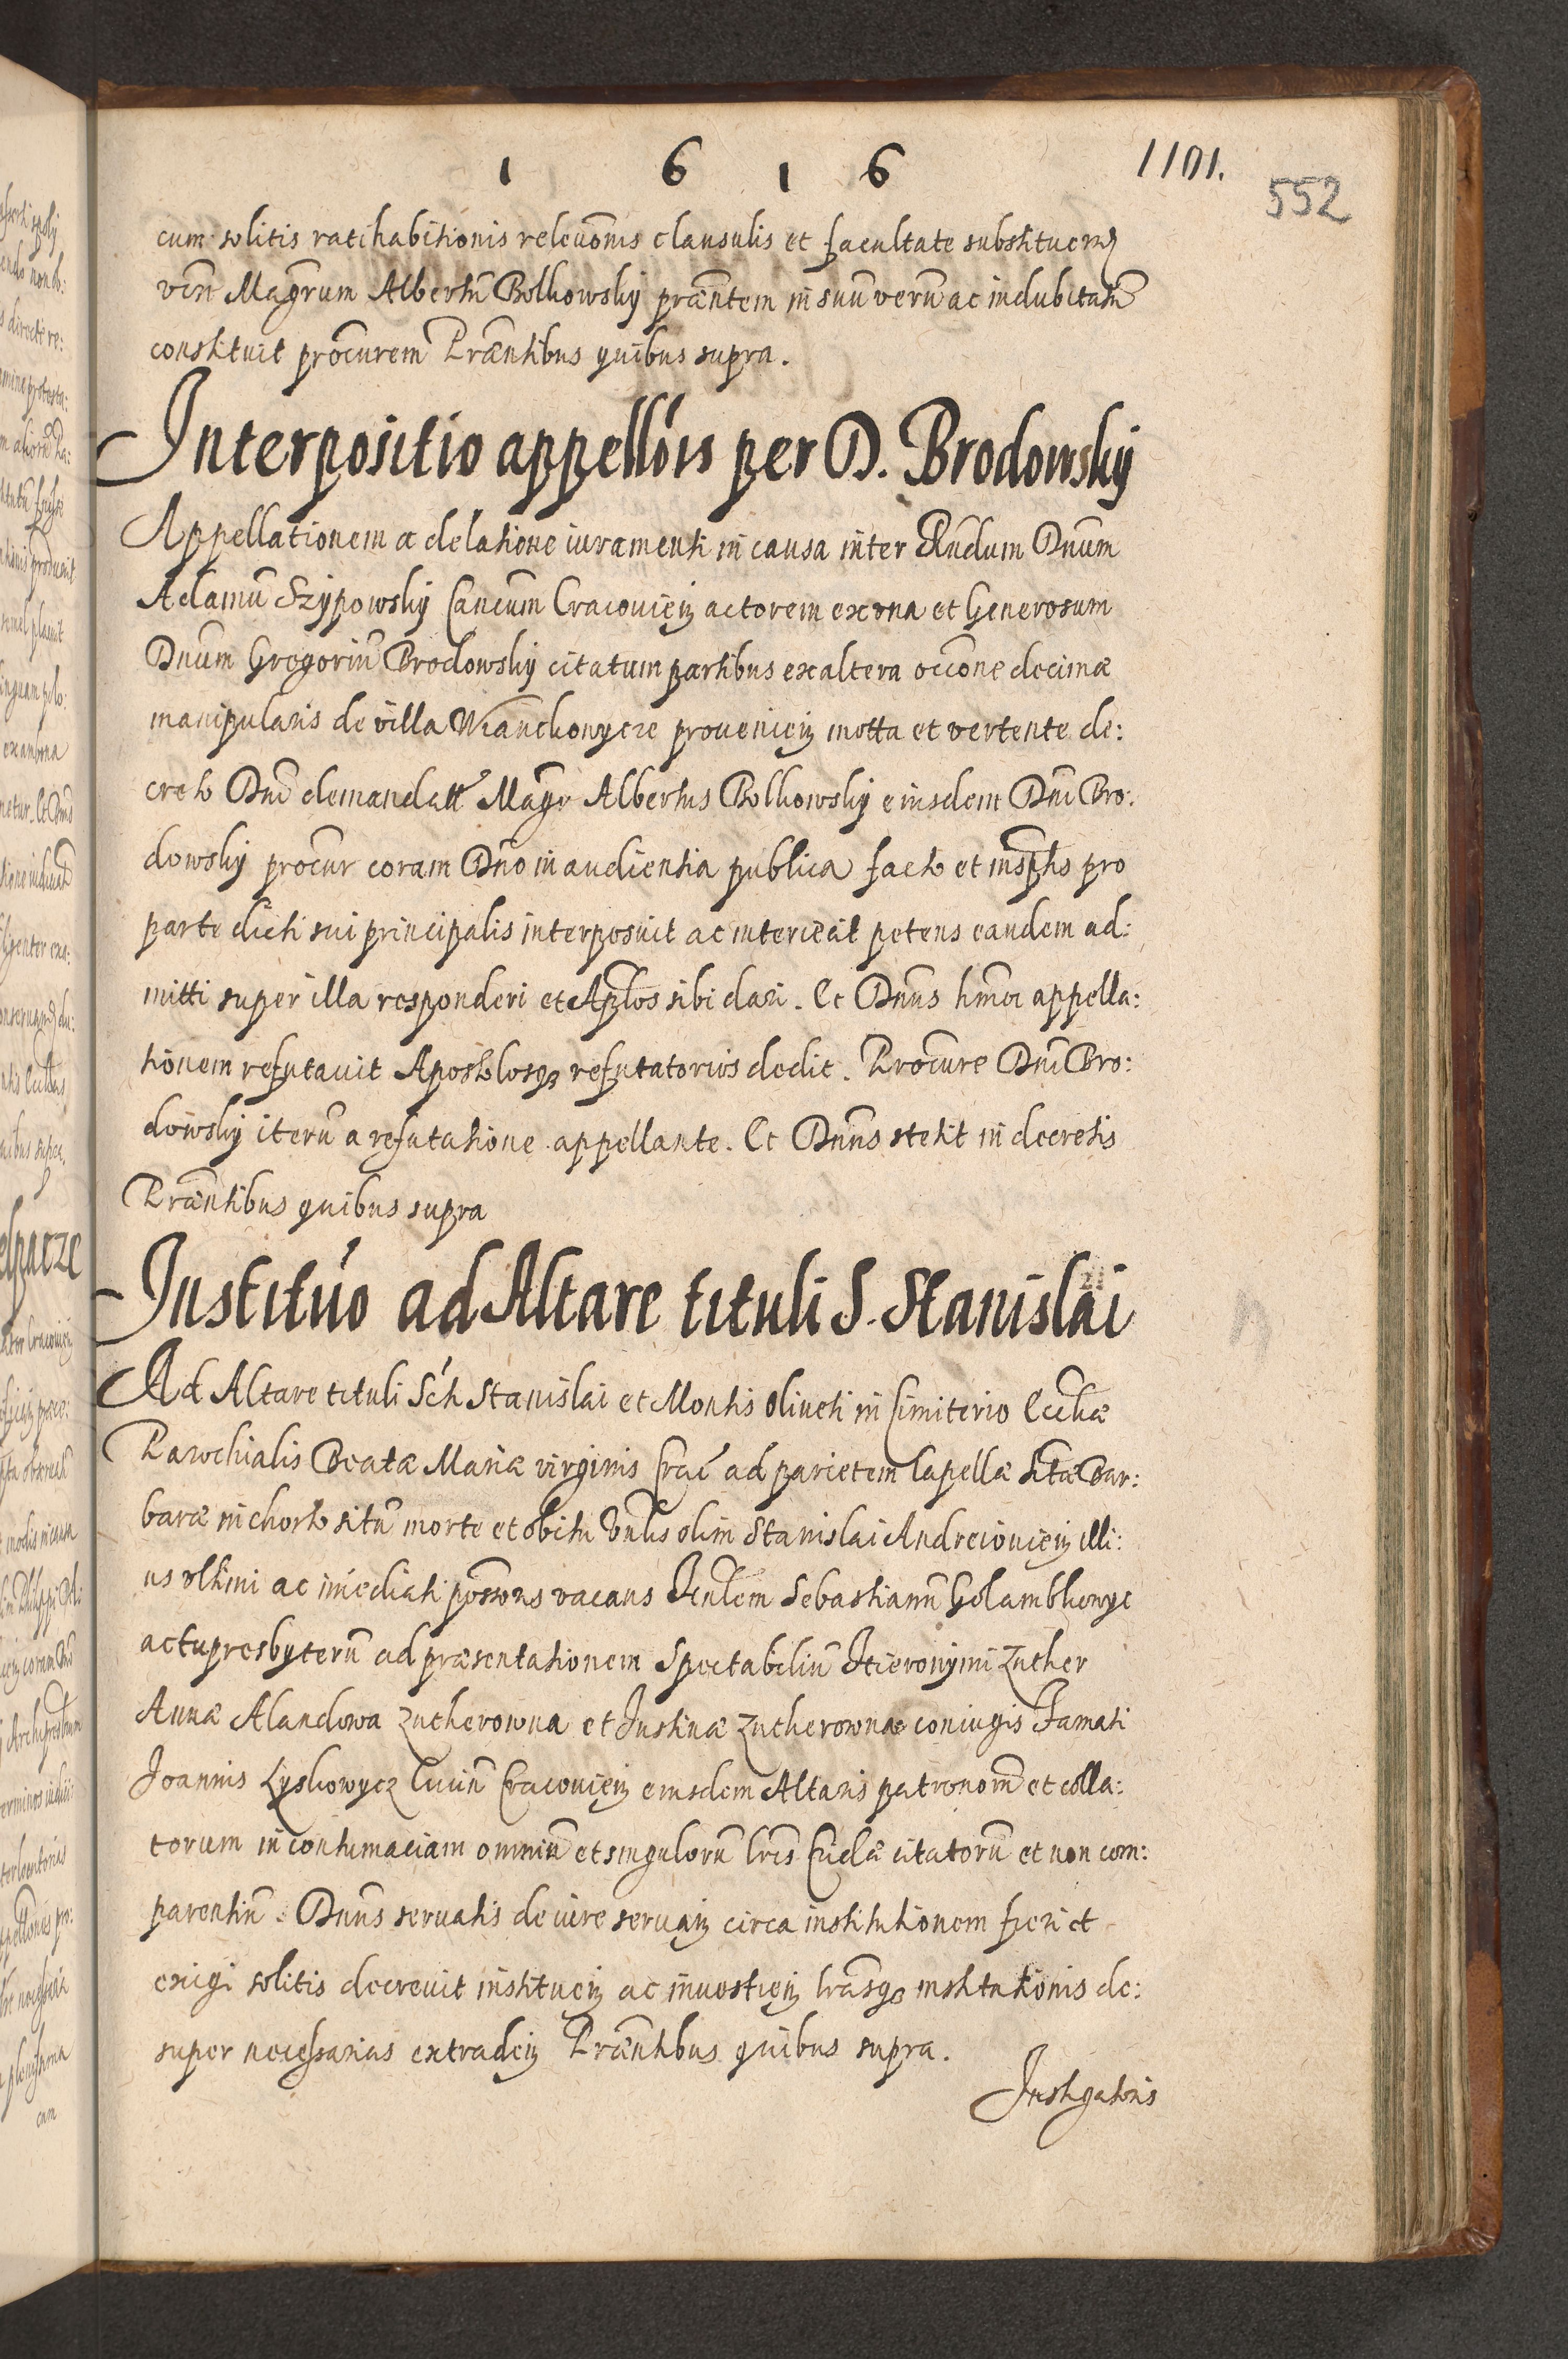 1 6 1 6 1101.
552
cum solitis ratihabitionis relevonis clausulis et facultate substituen
ven Magrum Albertu Bolkowsky praentem in suu veru ac indubitatu
constituit procurem Praentibus quibus supra.
Interpositio appellois per D. Brodowsky
Appellationem a delatione iuramenti in causa inter Rndum Dnum
Adamu Szypowsky Cancum Cracovien actorem ex una et Generosum
Dnum Gregoriu Brodowsky citatum partibus ex altera occone decimæ
manipularis de villa Wianckowycze provenien motta et vertente de:
creto Dni demandatt Magr Albertus Bolkowsky eiusdem Dni Bro:
dowsky procur coram Dno in audientia publica facto et inscptis pro
parte dicti sui principalis interposuit ac interiecit petens eandem ad:
mitti super illa responderi et Aplos sibi dari. Et Dnus hmoi appella:
tionem refutavit Apostolosq refutatorios dedit. Procure Dni Bro:
dowsky iteru a refutatione appellante. Et Dnus stetit in decretis
Praentibus quibus supra
Instituo ad Altare tituli S. Stanislai
Ad Altare tituli Scti Stanislai et Montis Oliveti in Cimiterio Eccliæ
Parochialis Beatæ Mariæ virginis Crac ad parietem Capellæ StæBar:
baræ in chorto situ morte et obitu Vnlis olim Stanislai Andreiovien illi:
us ultimi ac imediati possoris vacans Hnlem Sebastianu Golambkowyc
actu presbyteru ad præsentationem Spectabiliu Hieronymi Zuther
Annæ Alandowa Zutherowna et Justinæ Zutherownæ coniugis Famati
Joannis Lyskowycz Civiu Cracovien eiusdem Altaris patronom et colla:
torum in contumaciam omniu et singuloru lris Cridæ citatoru et non com:
parentiu. Dnus servatis de iure servan circa institutionem fieri et
exigi solitis decrevit instituen ac investien lrasq institutionis de:
super necessarias extraden Praentibus quibus supra.
Instigatoris